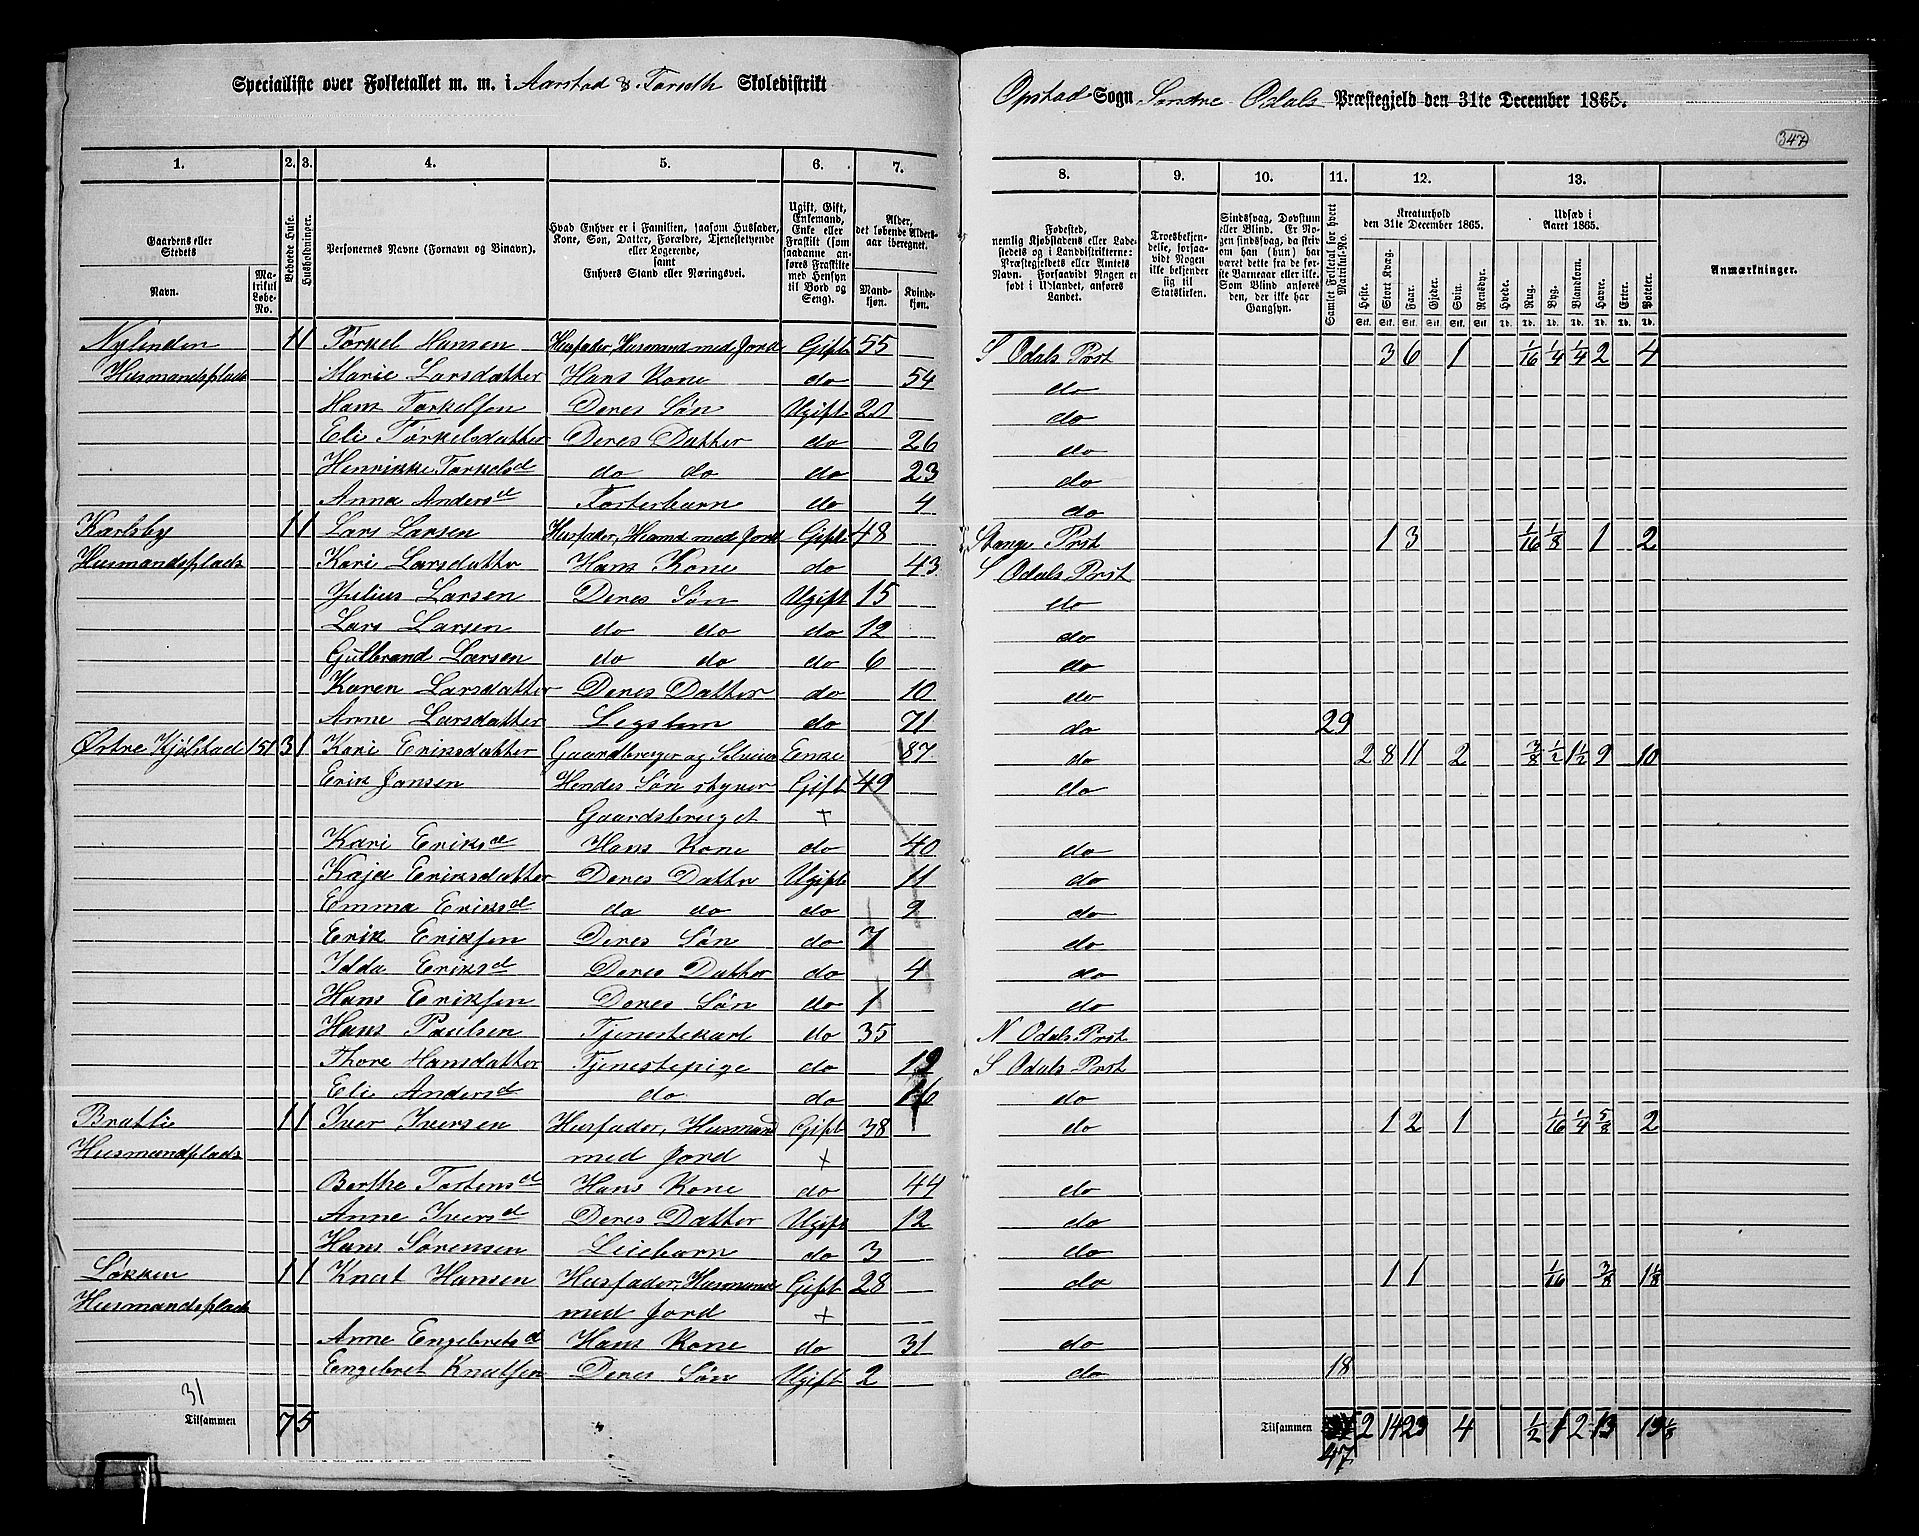 Specialliste over Folketallet m. m. i Aarstad & Tarseth Skoledistrikt
Opstad Sogn Søndre Odals Præstegjeld den 31te December 1865.
347
1. 2. 3. 4. 5. 6. 7. 8. 9. 10. 11. 12. 13.
Gaardens eller Stedets
Navn.
Matrikul Løbe-No.
Beboede Huse.
Husholdninger.
Personernes Navne (Fornavn og Binavn).
Hvad Enhver er i Familien, saasom Husfader, Kone, Søn, Datter, Forældre, Tjenestetyende eller Logerende, samt Enhvers Stand eller Næringsvei.
Ugift, Gift, Enkemand, Enke eller Fraskilt (som saadanne anføres Fraskilte med Hensyn til Bord og Seng).
Alder, det løbende Aldersaar iberegnet.
Mandkjøn. Kvindekjøn.
Fødested, nemlig Kjøbstadens eller Ladestedets og i Landdistrikterne: Præstegjeldets eller Amtets Navn. Forsaavidt Nogen er født i Udlandet, anføres Landet.
Troesbekjendelse, forsaavidt Nogen ikke bekjender sig til Statskirken.
Sindssvag, Døvstum eller Blind. Er Nogen sindssvag, da skriv om han (hun) har været dette fra de første Barneaar eller ikke. Som Blind anføres den, der ikke har Gangsyn.
Samlet Folketal for hvert Matrikul-No.
Kreaturhold den 31te December 1865.
Heste. Stort Kvæg. Faar. Gjeder. Svin. Rensdyr.
Udsæd i Aaret 1865.
Hvede. Rug. Byg. Blandkorn. Havre. Erter. Poteter.
Anmærkninger.
Nylenden 1 1 Torkel Hansen Husfader, Husmand med Jord Gift 55 S Odals Prst 3 6 1 1/16 1/4 1/4 2 4
Husmandsplads Marie Larsdatter Hans Kone do 54 do
Hans Torkelsen Deres Søn Ugift 20 do
Eli Torkelsdatter Deres Datter do 26 do
Henrikke Torkelsd do do do 23 do
Anna Andersd Fosterbarn do 4 do
Karlsby 1 1 Lars Larsen Husfader, Husmd med Jord Gift 48 Stange Prst 1 3 1/16 1/8 1 2
Husmandsplads Kari Larsdatter Hans Kone do 43 S Odals Prst
Julius Larsen Deres Søn Ugift 15 do
Lars Larsen do do do 12 do
Gulbrand Larsen do do do 6 do
Karen Larsdatter Deres Datter do 10 do
Anne Larsdatter Legslem do 71 do 29
Østre Kjølstad 151 3 1 Kari Eriksdatter Gaardbruger og Selveier Enke 87 do 2 8 11 2 3/8 1/2 1 1/2 9 10
Erik Jansen Hendes Søn styrer Gift 49 do
Gaardsbruget +
Kari Eriksd Hans Kone do 40 do
Kaja Eriksdatter Deres Datter Ugift 11 do
Emma Eriksd do do do 9 do
Erik Eriksen Deres Søn do 7 do
Idda Eriksd Deres Datter do 4 do
Hans Eriksen Deres Søn do 1 do
Hans Paulsen Tjenestekarl do 35 N Odals Prst
Thore Hansdatter Tjenestepige do 19 S Odals Prst
Eli Andersd do do 16 do
Bratlie 1 1 Iver Iversen Husfader, Husmand Gift 38 do 1 2 1 1/16 1/4 5/8 2
Husmandsplads med Jord +
Berthe Torstensd Hans Kone do 44 do
Anne Iversd Deres Datter Ugift 12 do
Hans Sørensen Leiebarn do 3 do
Løkken 1 1 Knut Hansen Husfader, Husmand Gift 28 do 1 1 1/16 3/8 1 1/8
Husmandsplads med Jord +
Anne Engebretsd Hans Kone do 31 do
Engebret Knutsen Deres Søn Ugift 2 do 18
31
Tilsammen 7 5 Tilsammen 47 2 14 23 4 1/2 1 2 13 19 1/8